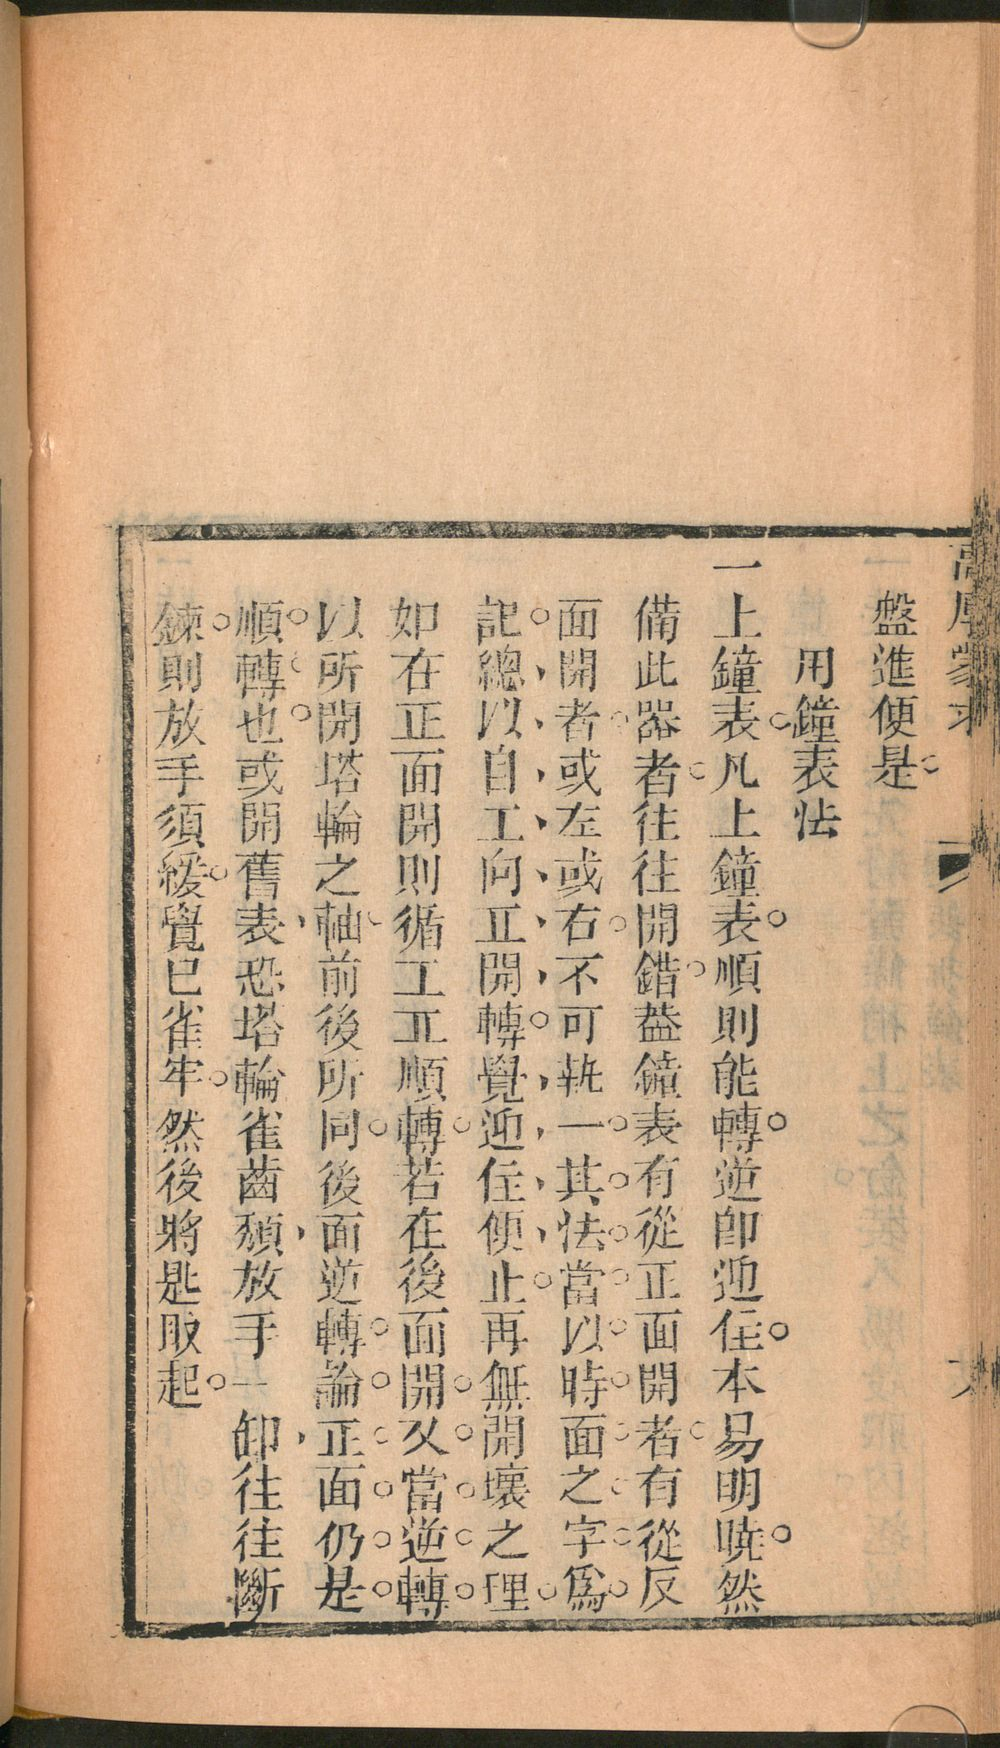 高厚蒙求
盤進便是。
用鐘表法
一上鐘表。凡上鐘表。順則能轉。逆卽迎住。本易明曉。然
備此器者。往往開錯。葢鐘表有從正面開者。有從反
面開者。或左或右。不可執一。其法當以時面之字爲
記。總以自工向正開轉。覺迎住便止。再無開壞之理。
如在正面開則循工正順轉。若在後面開。又當逆轉。
以所開塔輪之軸。前後所同。後面逆轉。論正面仍是。
順轉也。或開舊表，恐塔輪雀齒頹，放手一卸，往往斷
鍊。則放手須緩。覺已雀牢。然後將匙取起。